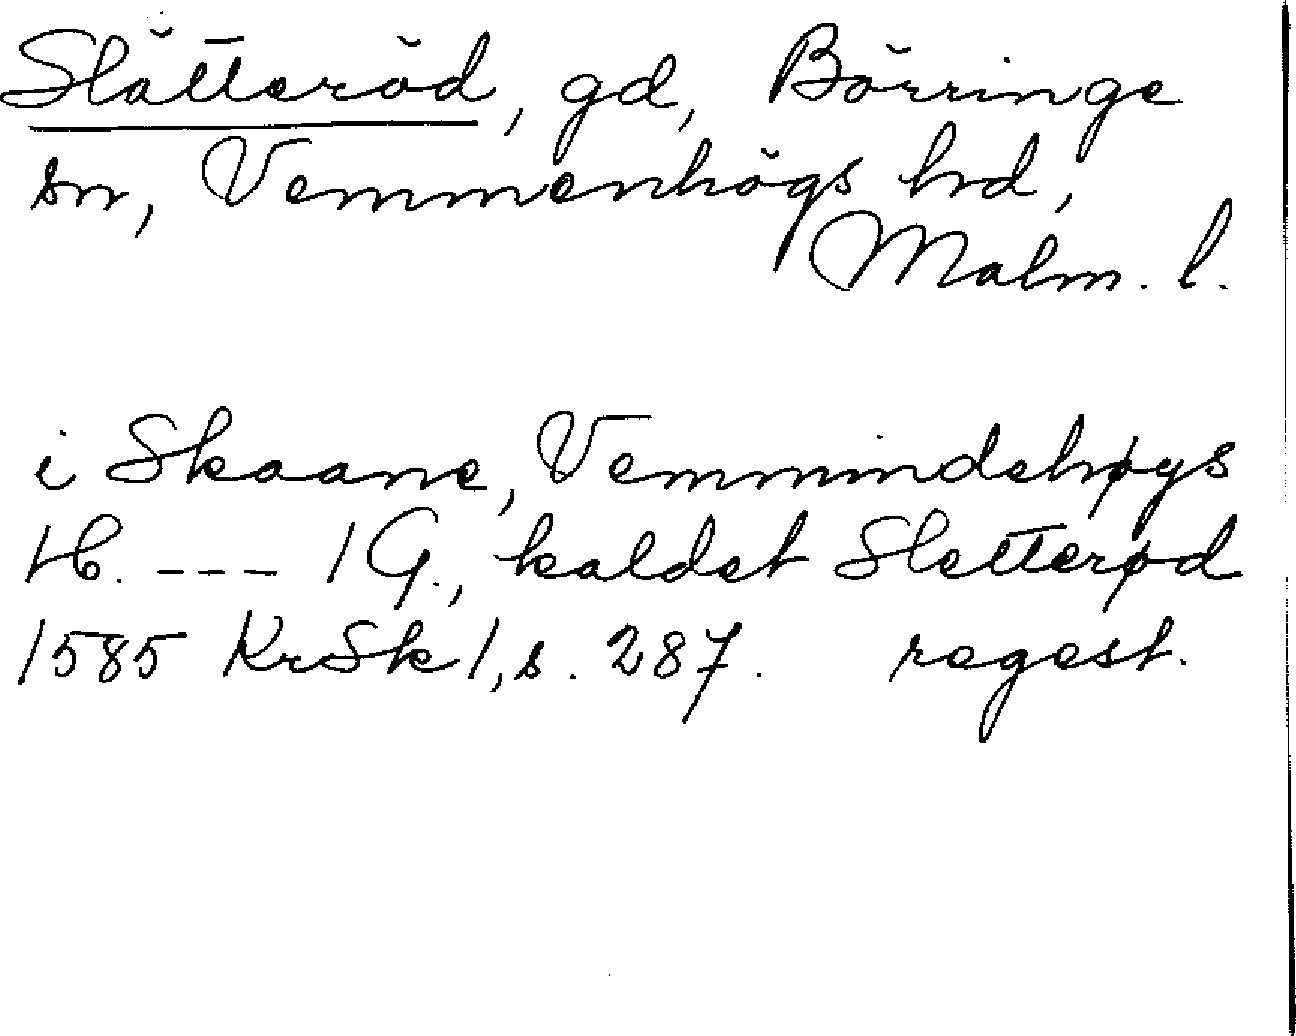 Slätteröd, gd, Börringe
sn, Vemmenhögs hrd,
Malm. l.
i Skaane, Vemmindehøys
H. --- 1 G., kaldet Sletterød
1585 KrSk 1, s. 287. regest.